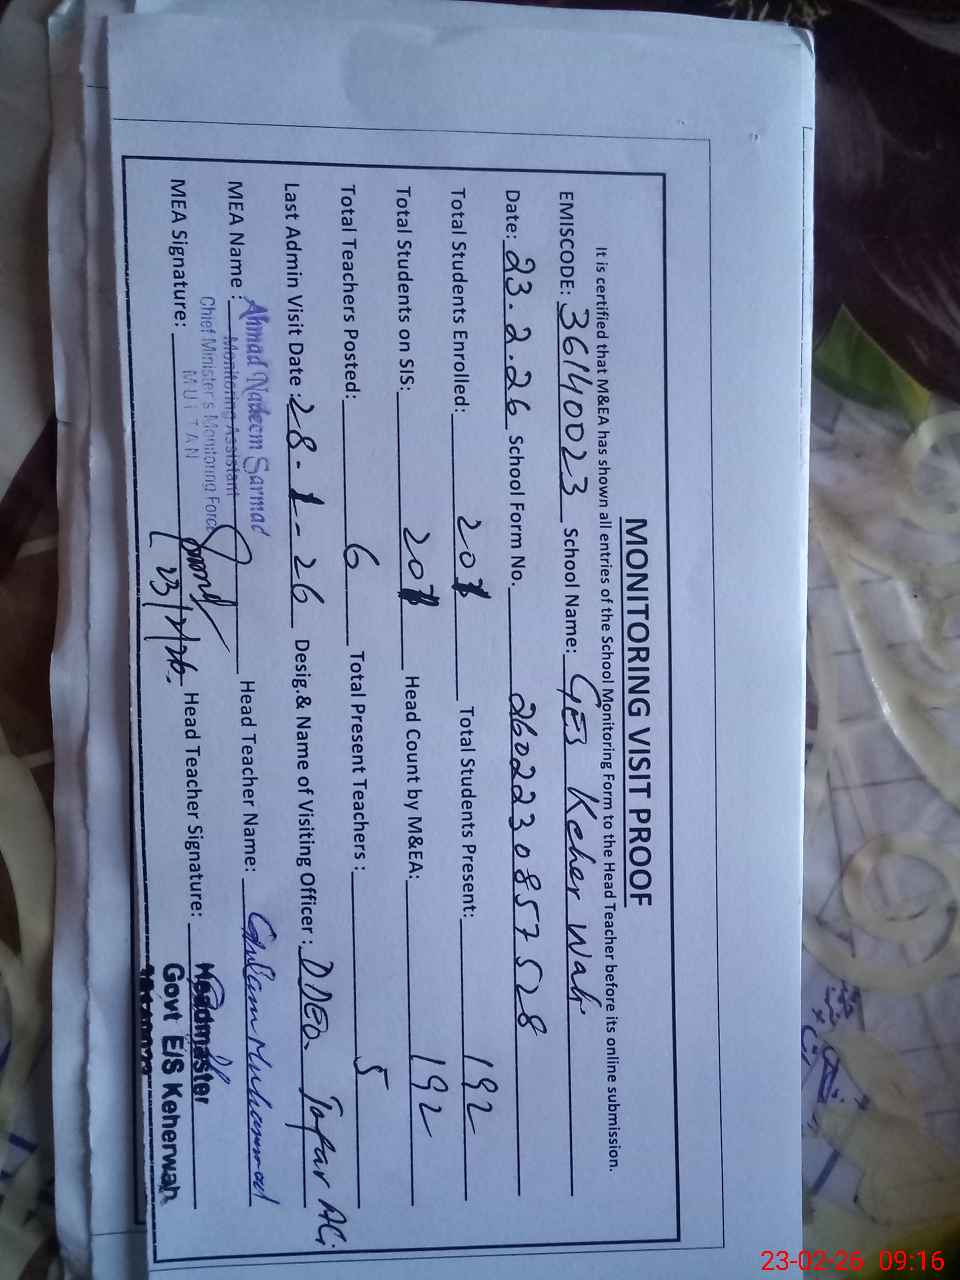 MONITORING VISIT PROOF
It is certified that M&EA has shown all entries of the School Monitoring Form to the Head Teacher before its online submission.
EMISCODE: 36140023 School Name: GES Keher Wah
Date: 23.2.26 School Form No. 2602230857528
Total Students Enrolled: 201 Total Students Present: 192
Total Students on SIS: 201 Head Count by M&EA: 192
Total Teachers Posted: 6 Total Present Teachers : 5
Last Admin Visit Date : 28-1-26 Desig.& Name of Visiting Officer : DDEO
MEA Name : Ahmad Nadeem Sarmad Head Teacher Name: Ghulam Muhammad
Monitoring Assistant
Chief Minister's Monitoring Force
MULTAN
MEA Signature: 23/2/26. Head Teacher Signature: Headmaster
Govt E/S Keherwah
23-02-26 09:16